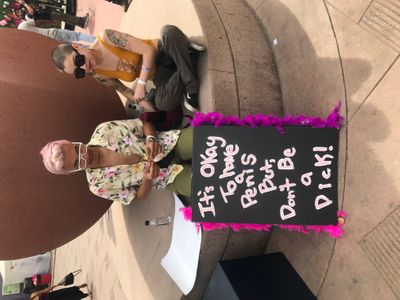 It's Okay
To have
a
Penis
But,
Don't Be
a
Dick!